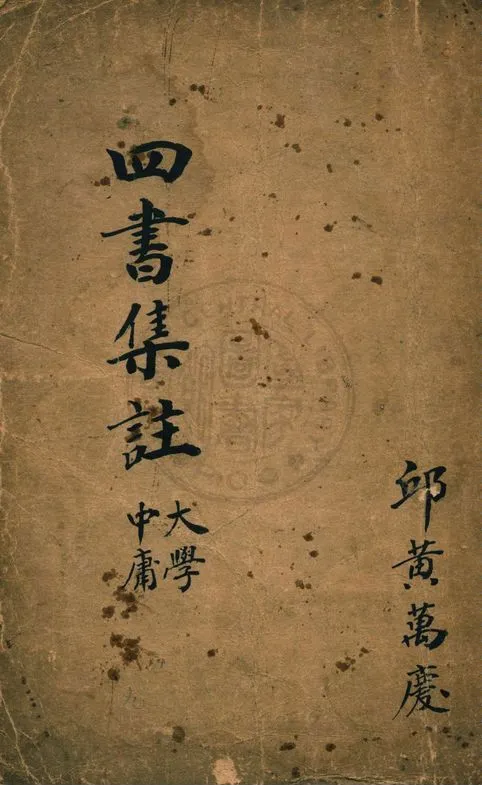 四書集註
大學
中庸
邱黃萬慶
CENTRAL